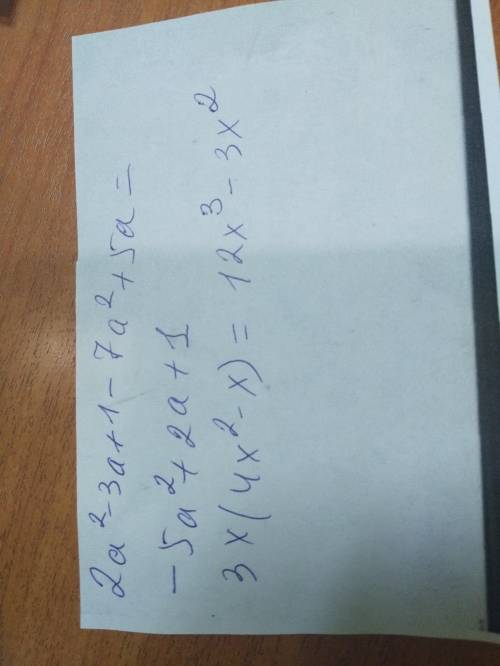 2a² - 3a + 1 - 7a² + 5a =
- 5a² + 2a + 1
3x(4x² - x) = 12x³ - 3x²